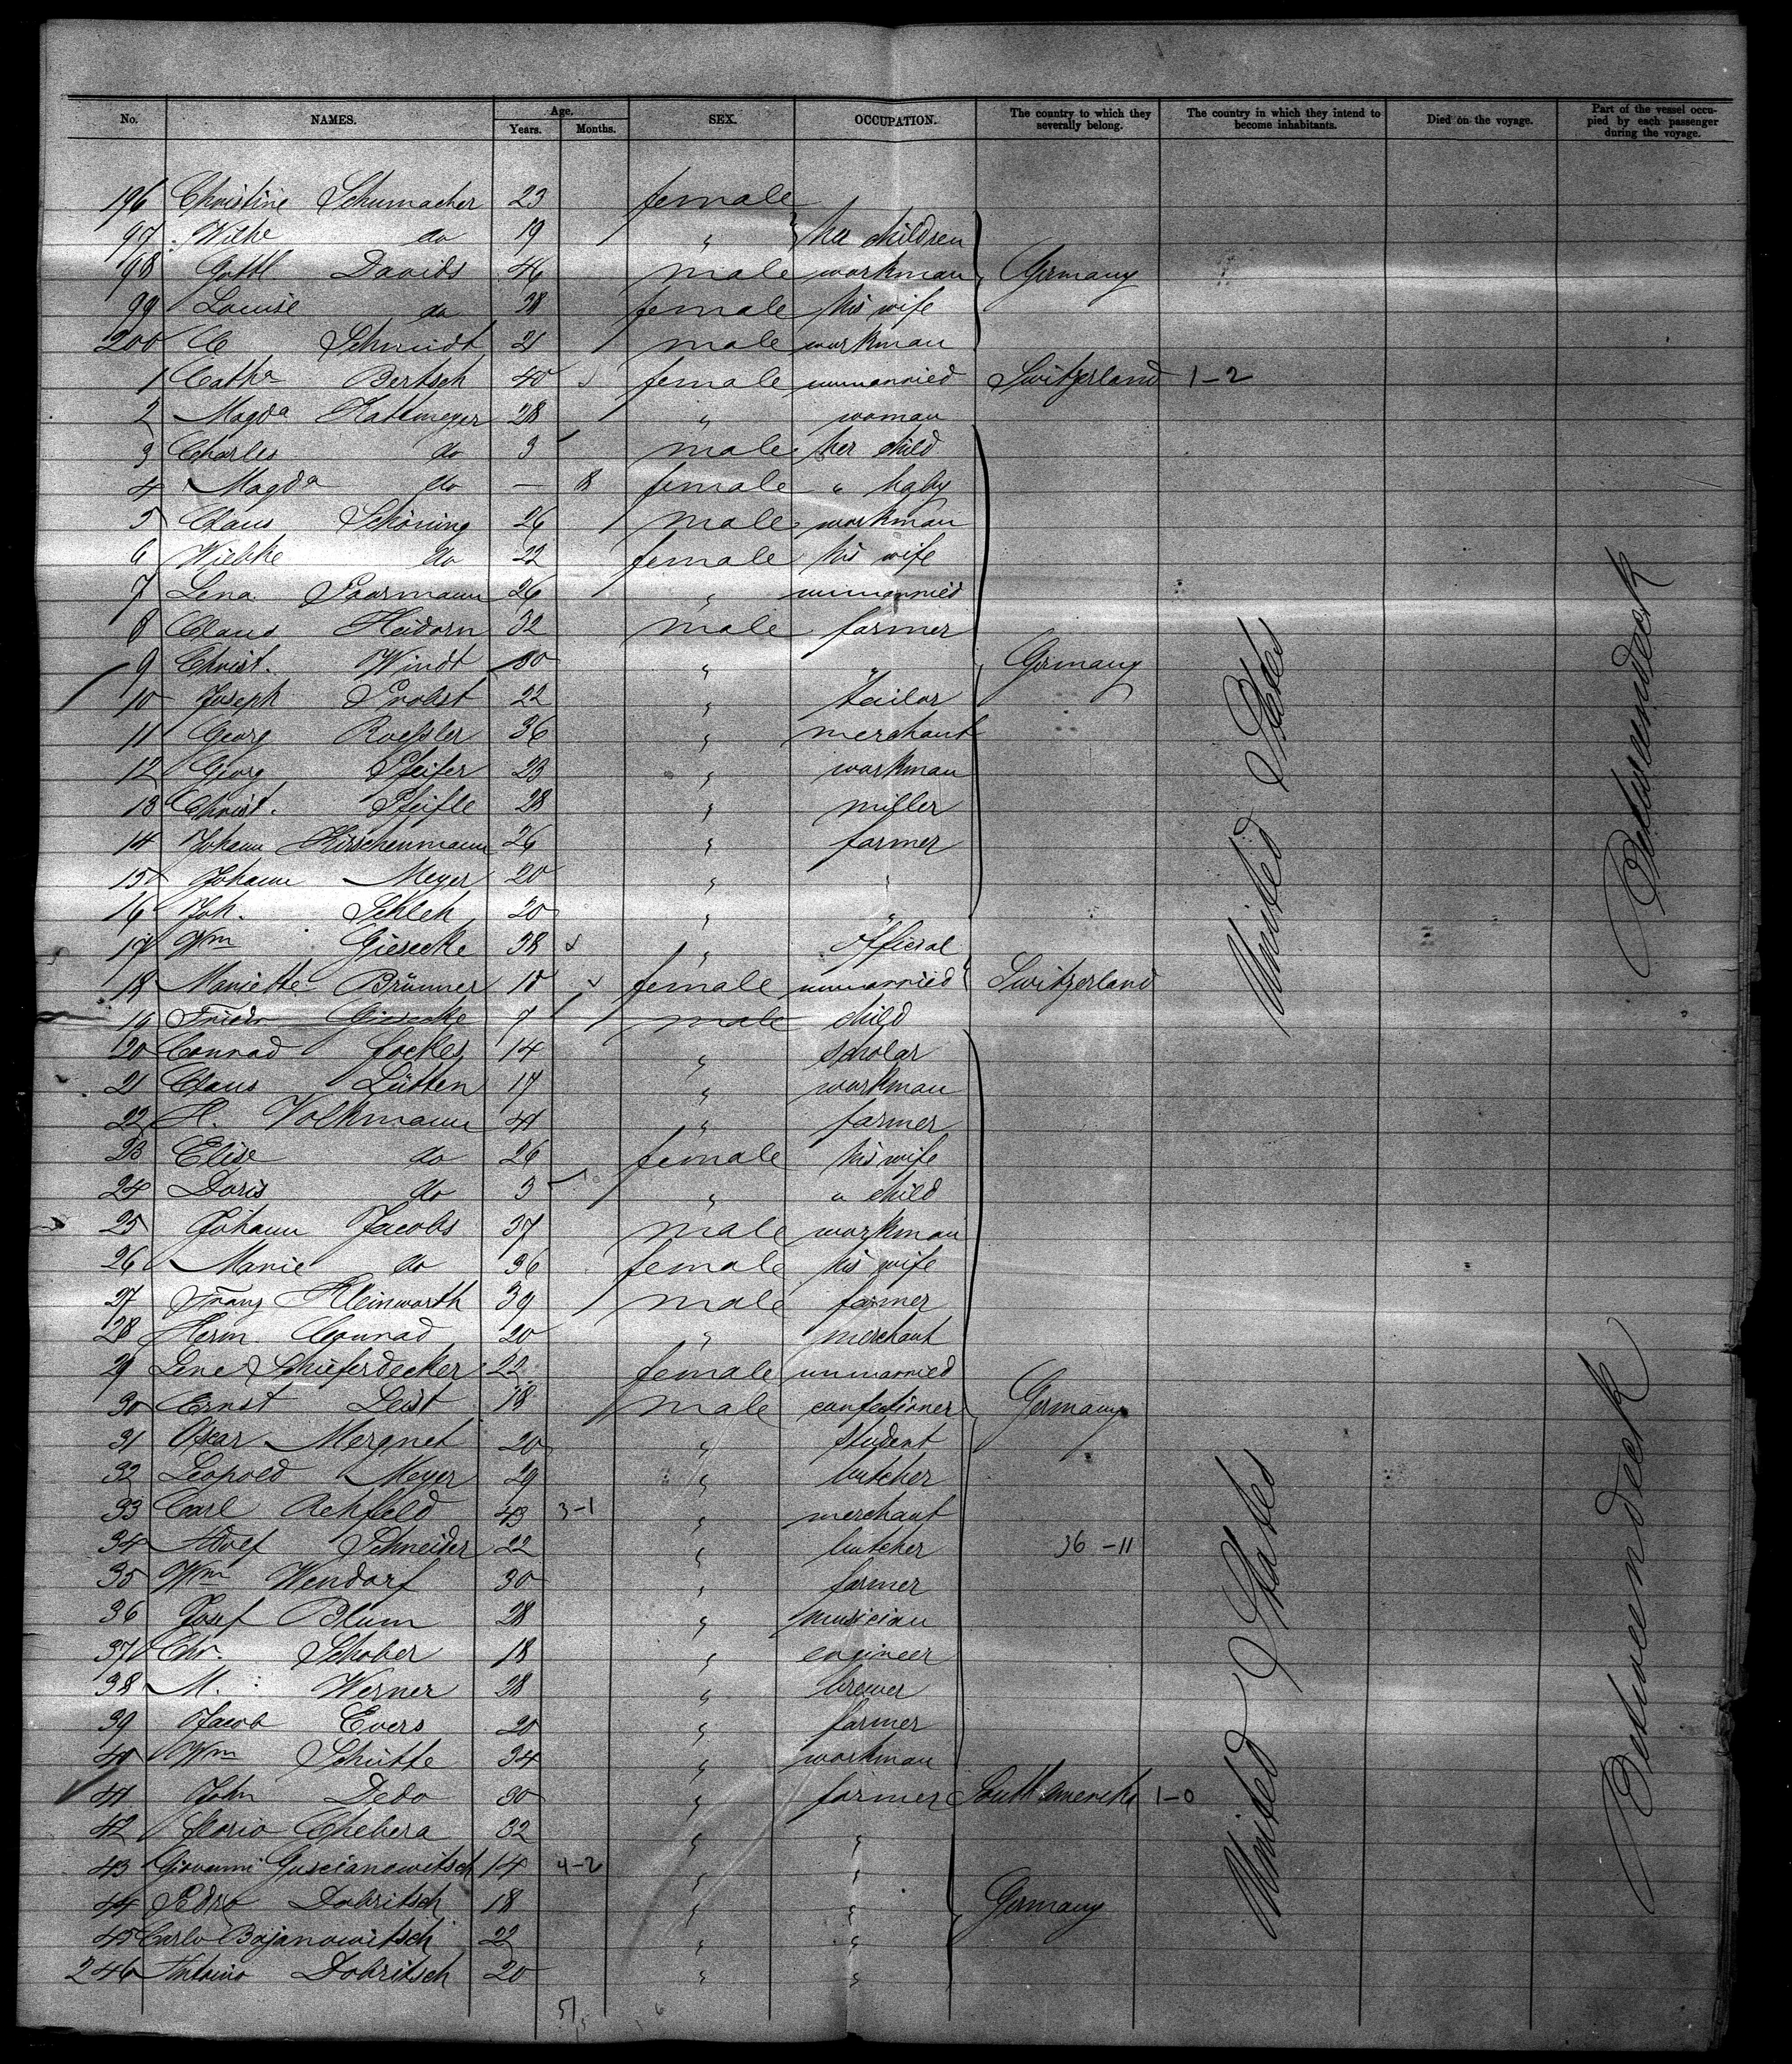 No. NAMES. Age. Years. Months. SEX. OCCUPATION. The country to which they severally belong. The country in which they intend to become inhabitants. Died on the voyage. Part of the vessel occupied by each passenger during the voyage.
196 Christine Schumacher 23 female
97 Wilhe do 19 " her children
98 Gottl Davids 46 male workman Germany
99 Louise do 38 female his wife
200 C Schmidt 21 male workman
1 Catha Bertsch 40 female unmarried Switzerland 1-2
2 Magda Kattmeyer 28 " woman
3 Charles do 3 male her child
4 Magda do — 8 female " baby
5 Claus Schöning 26 male workman
6 Wiebke do 22 female his wife
7 Lena Paarmann 26 " unmarried
8 Claus Heidorn 32 male farmer
9 Christ. Windt 30 " " Germany
10 Joseph Probst 22 " tailor
11 Georg Roessler 36 " merchant
12 Georg Pfeifer 23 " workman
13 Christ. Pfeifle 28 " miller
14 Johann Hirschenmann 26 " farmer
15 Johann Meyer 20 " "
16 Joh. Schleh 20 " "
17 Wm Giesecke 38 " official
18 Mariette Brünner 18 female unmarried Switzerland
19 Friedr Giesecke 7 male child
20 Conrad Fockes 14 " scholar
21 Claus Lütten 17 " workman
22 H. Volkmann 41 " farmer
23 Elise do 26 female his wife
24 Doris do 3 " " child
25 Johann Jacobs 37 male workman
26 Marie do 36 female his wife
27 Franz Kleinworth 39 male farmer
28 Herm. Conrad 20 " merchant
29 Lene Schieferdecker 22 female unmarried
30 Ernst Leist 18 male confectioner Germany
31 Oscar Mergnet 20 " student
32 Leopold Meyer 29 " butcher
33 Carl Achfeld 43 3-1 " merchant
34 Adolf Schneider 22 " butcher 36-11
35 Wm Wendorf 30 " farmer
36 Josef Blum 28 " musician
37 Chr. Schober 18 " engineer
38 M. Werner 28 " brewer
39 Jacob Evers 20 " farmer
40 Wm Schütte 34 " workman
41 John Dedo 30 " farmer South America 1-0
42 Florio Chebera 32 " "
43 GiovanniGuscianowitsch 14 4-2 " "
44 Pedro Dobritsch 18 " " Germany
45 Carlo Bojanowitsch 22 " "
246 Antoino Dobritsch 20 " "
United States
Betweendeck
United States
Betweendeck